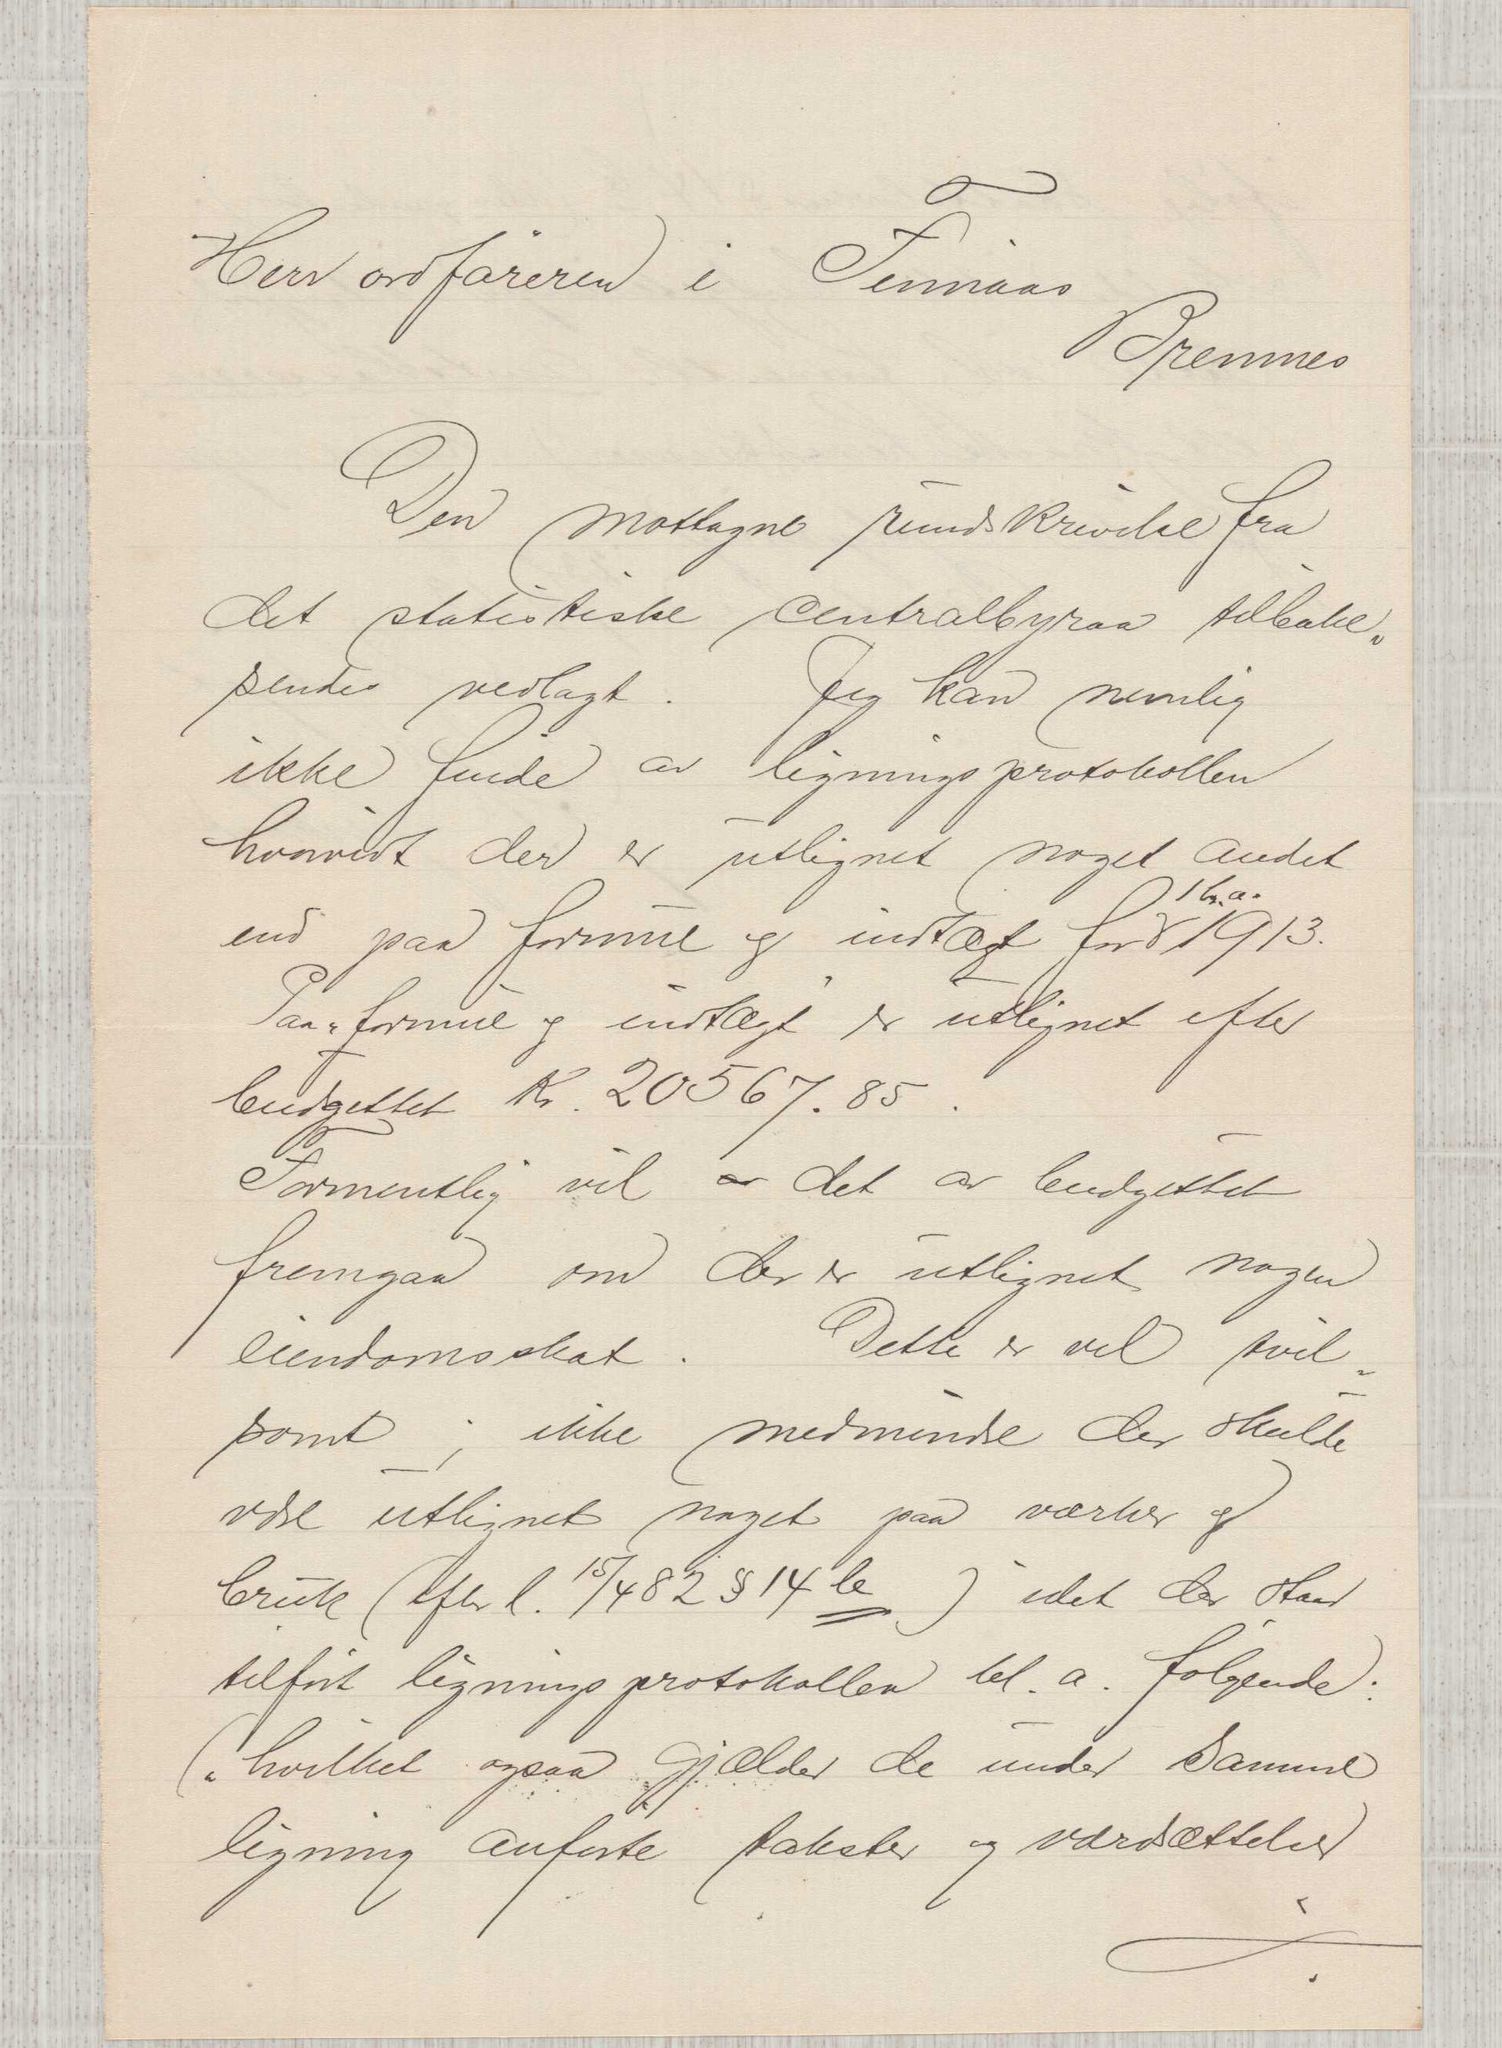 Herr ordføreren i Finnaas
Bremnes
Den mottagne rundskrivelse fra
det statistiske centralbyraa tilbake„
sendes vedlagt. Jeg kan nemlig
ikke finde av ligningsprotokollen
hvorvidt der er utlignet noget andet
end paa formue og indtægt for 1913.
Paa „formue og indtægt” er utlignet efter
budgettet kr. 20567.85.
Formentlig vil det av budgettet
fremgaa om der er utlignet nogen
eiendomsskat. Dette er vel tvil„
somt; ikke medmindre der skulde
være utlignet noget paa værker og
bruk (efter l. 15/4 82 § 14 b) idet der staar
tilført ligningsprotokollen bl. a. følgende:
(„hvilket ogsaa gjælder de under samme
ligning anførte takster og værdsættelser